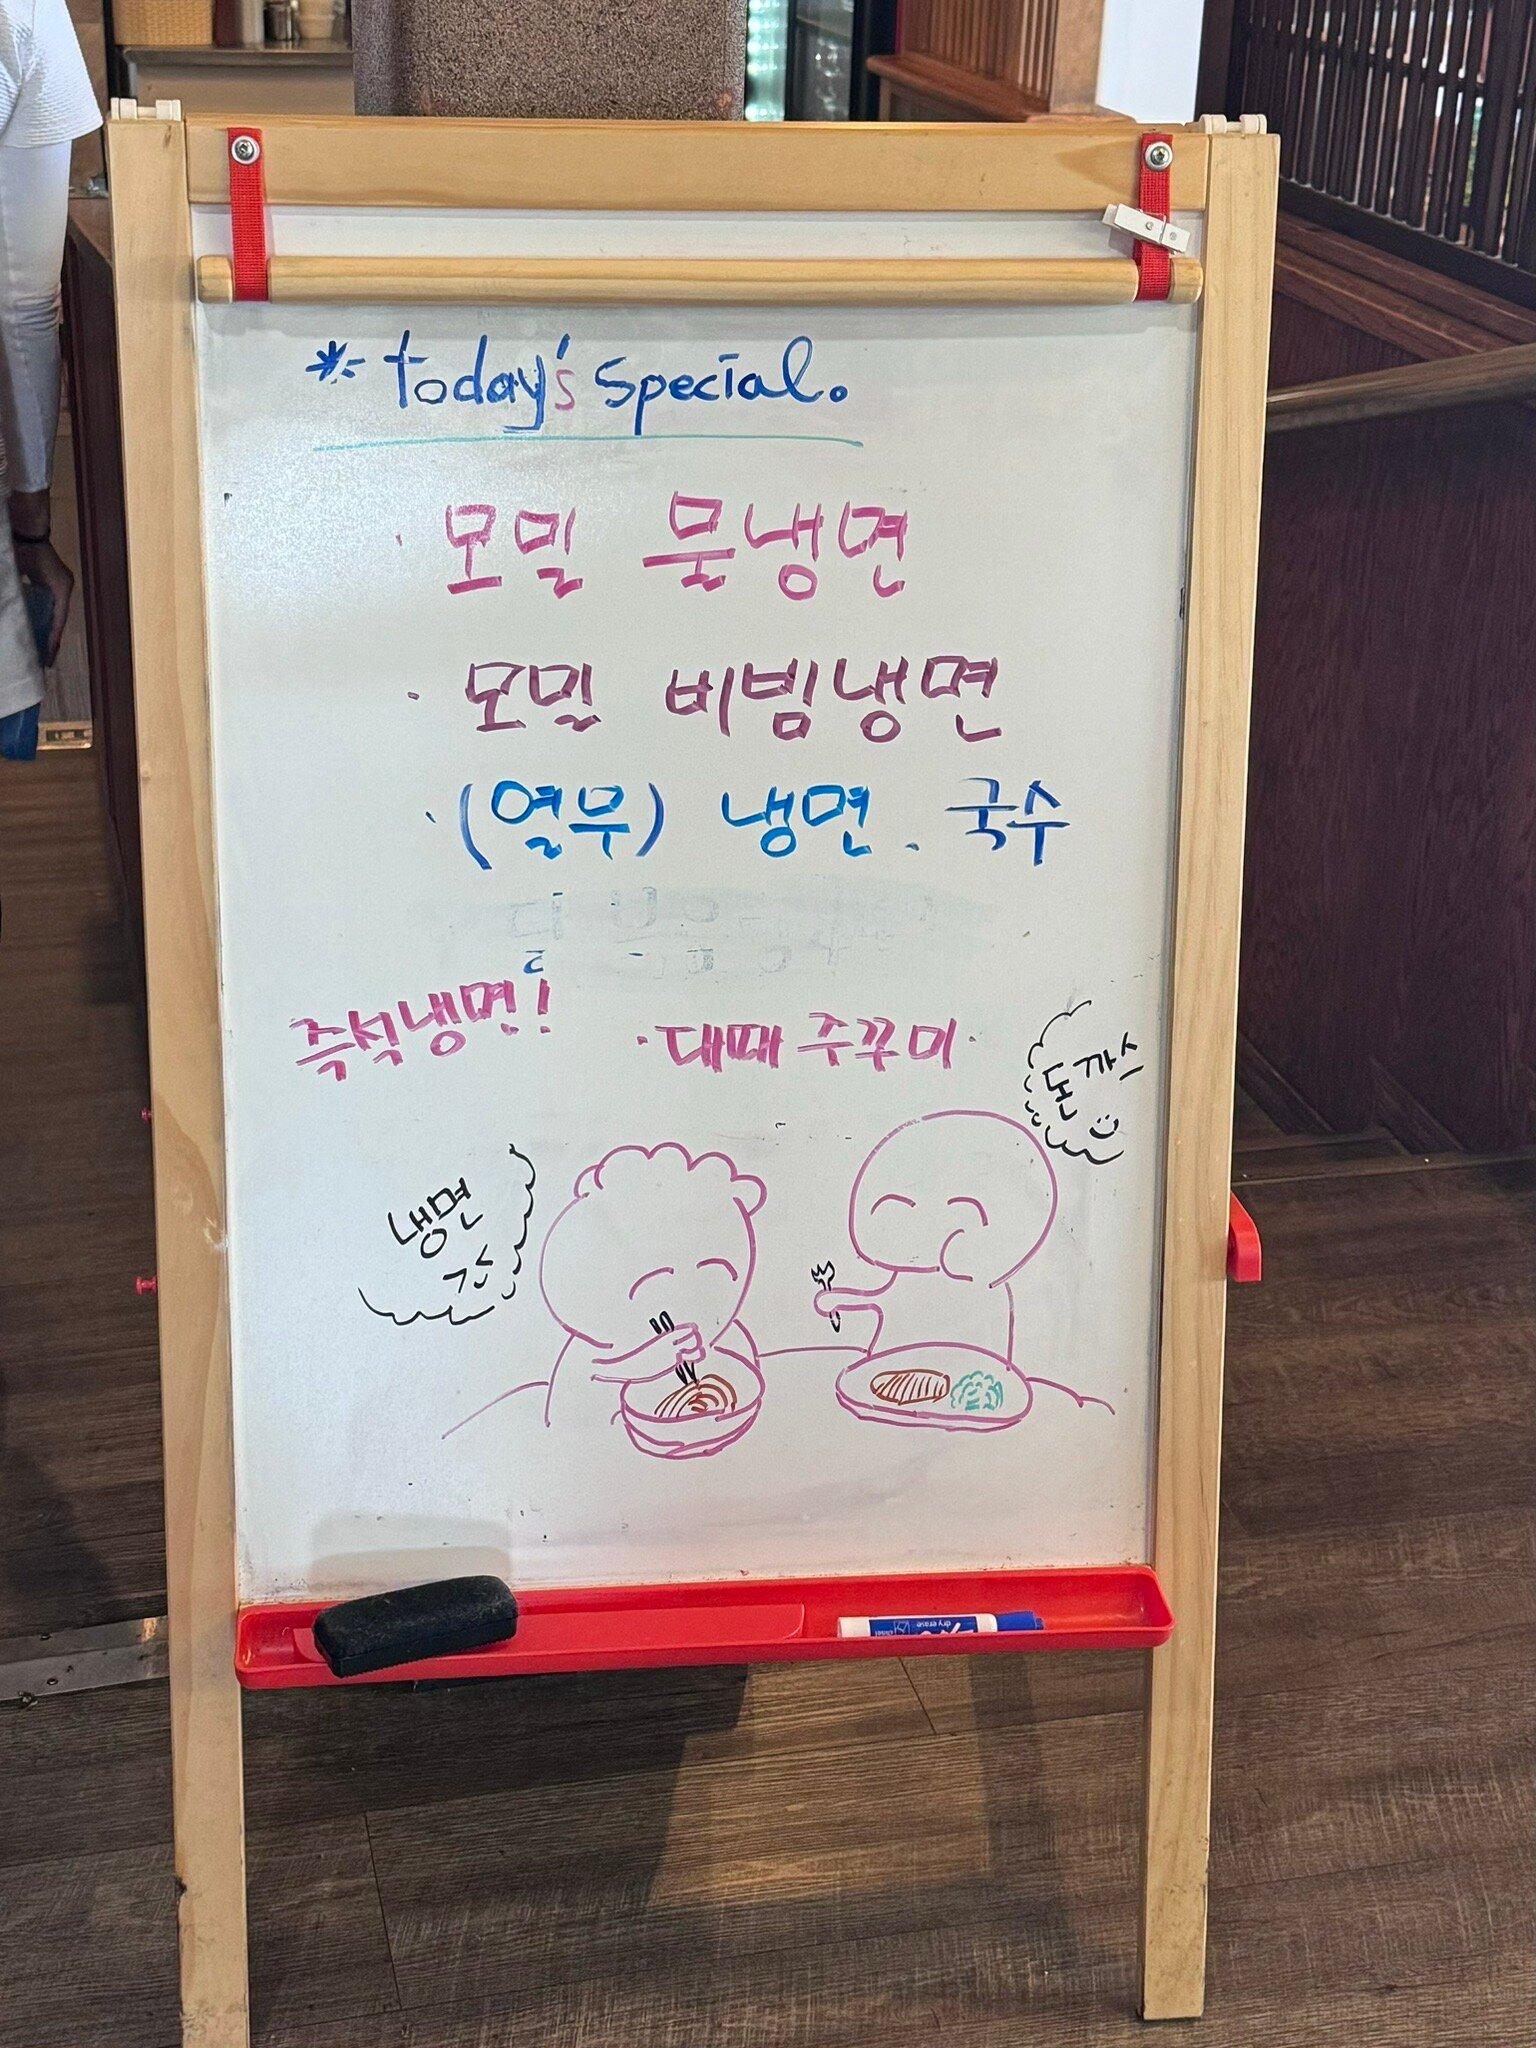 * today's special.
· 모밀 물냉면
· 모밀 비빔냉면
· (열무) 냉면. 국수
즉석냉면!
· 대패 주꾸미 ·
돈까스
냉면
굿
dry erase